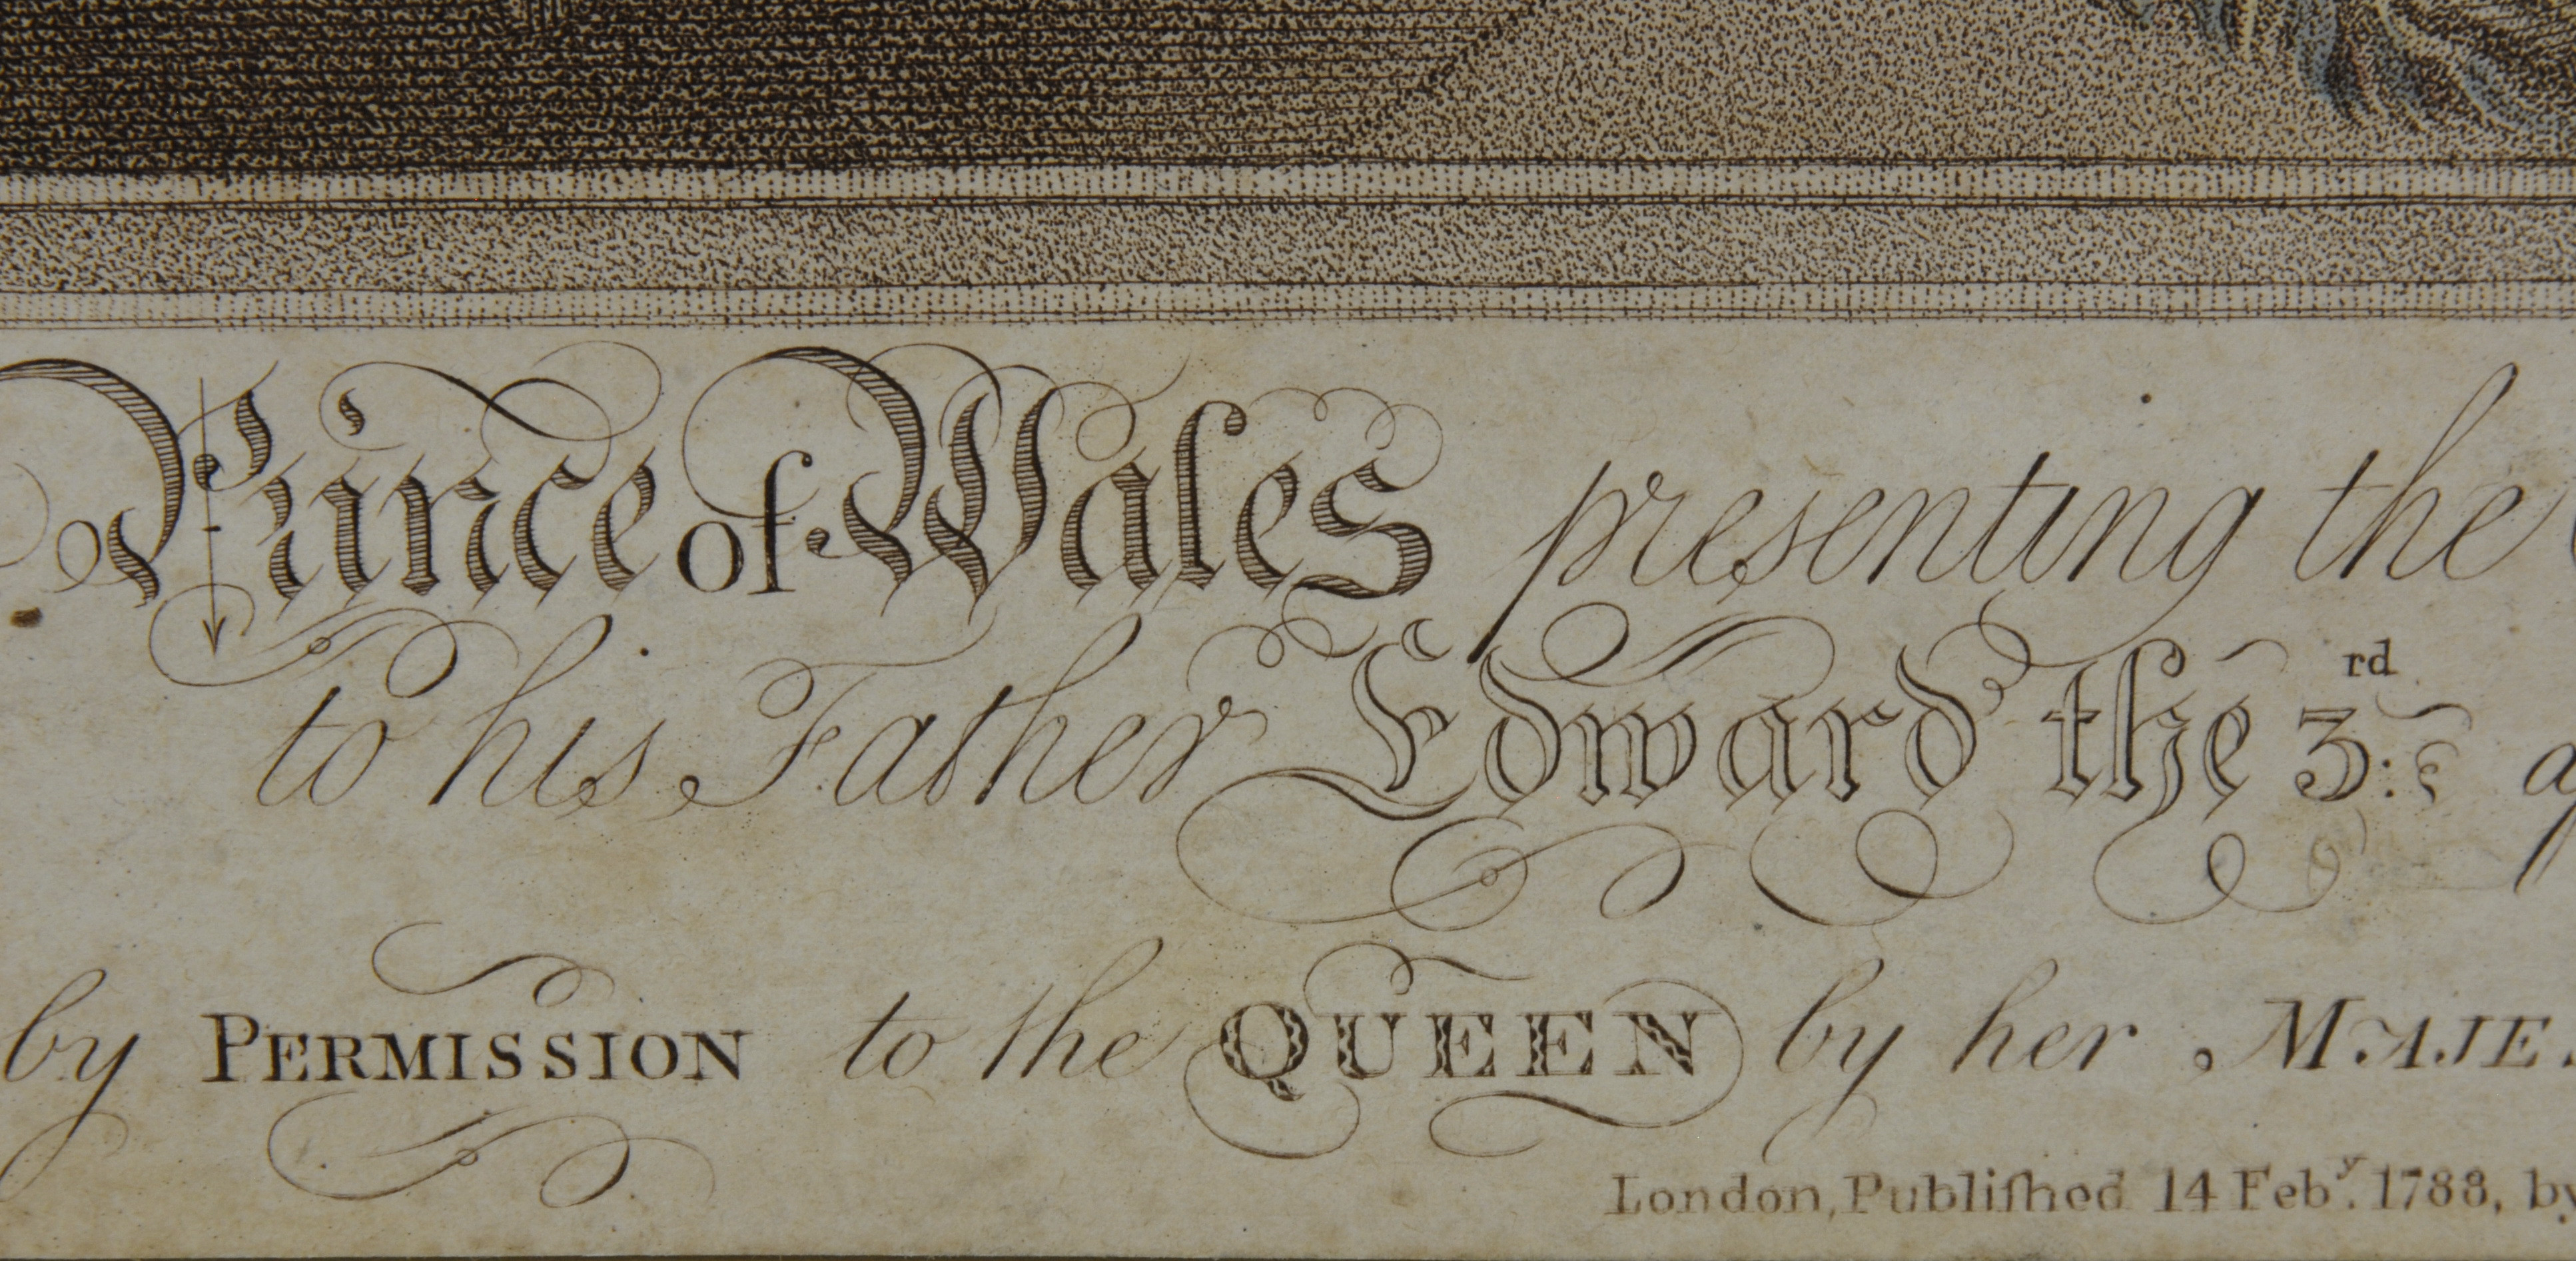 Prince of Wales presenting the
to his Father Edward the 3:rd
by PERMISSION to the QUEEN by her MAJE
London, Publiſhed 14 Feby. 1788, by